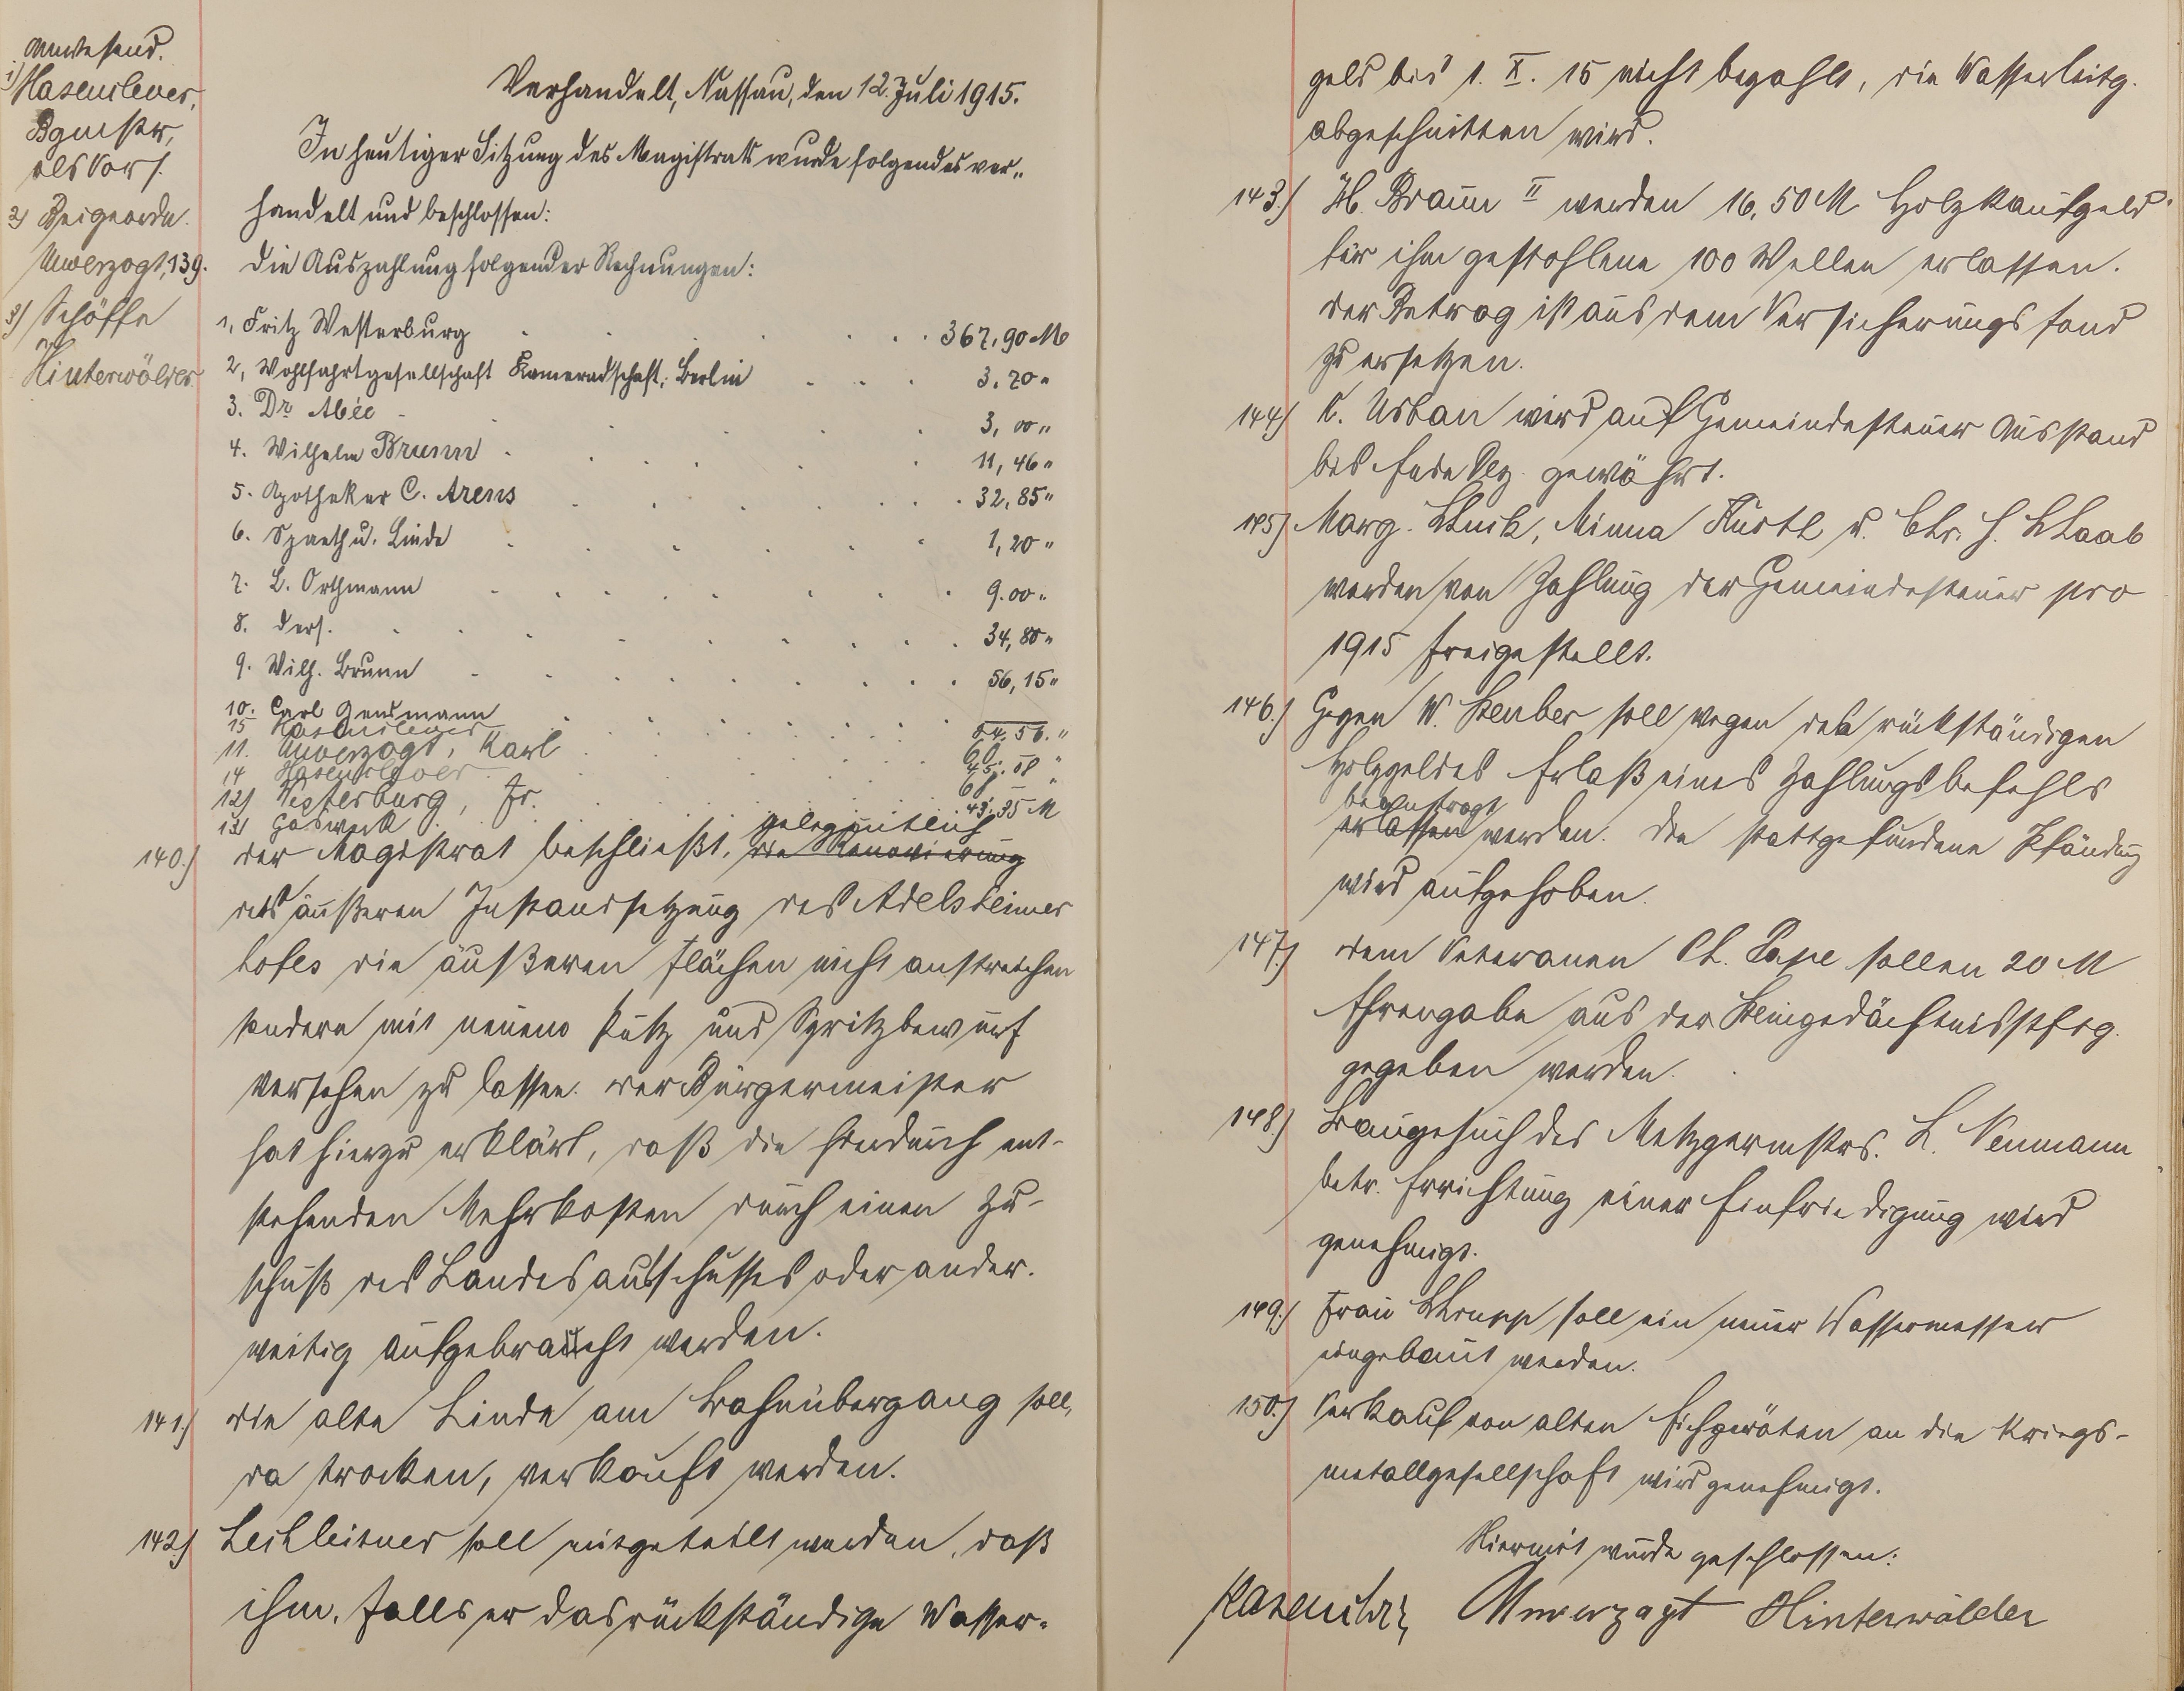 Anwesend.
1) Hasenclever,
Bgmstr,
als Vors.
2) Beigeordn.
Unverzagt,
3) Schöffe
Hinterwälder
Verhandelt, Nassau, den 12. Juli 1915.
In heutiger Sitzung des Magistrats wurde folgendes ver„
handelt und beschlossen:
139. Die Auszahlung folgender Rechnungen:
1, Fritz Westerburg 367,90 M
2, Wohlfahrtgesellschaft Kameradschaft, Berlin 3.20 „
3. Dr. Abée 3,00 „
4. Wilhelm Brunn 11,46 „
5. Apotheker C. Arens 32,85 „
6. Spaeth u. Linde 1,20 „
7. L. Orthmann 9.00 „
8. ders. 34,80 „
9. Wilh. Brunn 56,15 „
10. Carl
15 Hasenclever
11. Unverzagt, Karl
14 Hasenclever
12) Westerburg, Fr.
13) Gaswerk 43,35 M
gelegentlich
140.) Der Magistrat beschließt, die Renovierung
des äußeren Instandsetzung des Adelsheimer
hofes die äußeren Flächen nicht anstreichen
sondern mit neuem Putz und Spritzbewurf
versehen zu lassen. Der Bürgermeister
hat hierzu erklärt, daß die hierdurch ent-
stehenden Mehrkosten durch einen Zu-
schuß des Landesausschusses oder ander.
weitig aufgebracht werden.
141.) Die alte Linde am Bahnübergang soll,
da trocken, verkauft werden.
142.) Lechleitner soll mitgeteilt werden, daß
ihm, falls er das rückständige Wasser-
geld bis 1. X. 15 nicht bezahlt, die Wasserleitg.
abgeschnitten wird.
143.) H. Braun II werden 16,50 M Holzkaufgeld
für ihm gestohlene 100 Wellen erlassen.
Der Betrag ist aus dem Versicherungsfond
zu ersetzen.
144.) K. Urban wird auf Gemeindesteuer Ausstand
bis Ende Dez. gewährt.
145.) Marg. Minna Kurth u. Chr. H.
werden von Zahlung der Gemeindesteuer pro
1915 freigestellt.
146.) Gegen W. Steuber soll wegen des rückständigen
Holzgeldes Erlaß eines Zahlungsbefehls
beantragt
erlassen werden. Die stattgefundene Pfändung
wird aufgehoben.
147.) Dem Veteranen Ph. Pape sollen 20 M
Ehrengabe aus der Steingedächtnisstftg.
gegeben werden.
148.) Baugesuch des Metzgermstrs. L. Neumann
betr. Errichtung einer Einfriedigung wird
genehmigt.
149.) Frau soll ein neuer Wassermesser
eingebaut werden.
150.) Verkauf von alten Eichgeräten an die Kriegs-
metallgesellschaft wird genehmigt.
Hiermit wurde geschlossen:
Hasenclever Unverzagt Hinterwälder